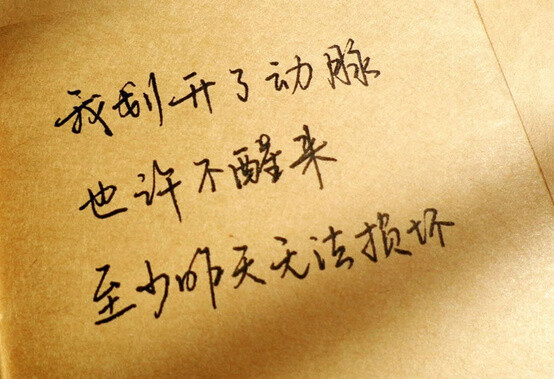 我划开了动脉
也许不醒来
至少昨天无法损坏